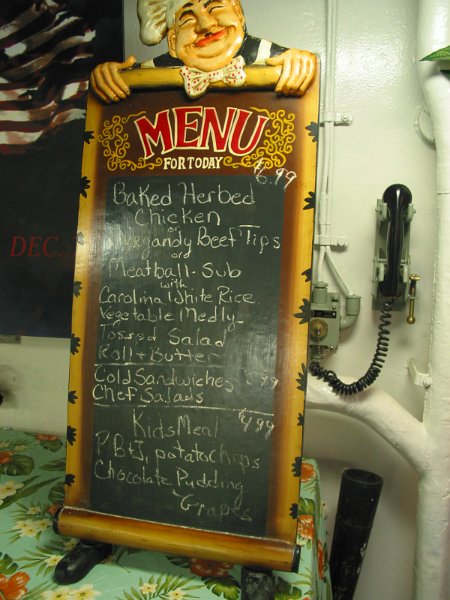 DEC.
MENU
FOR TODAY
6.99
Baked Herbed
Chicken
or
Beef Tips
or
Meatball-Sub
with
Carolina White Rice
Vegetable Medly-
Tossed Salad
Roll + Butter
Cold Sandwiches
Chef Salads
Kids Meal 4.99
PB+J, potato chips
Chocolate Pudding
Grapes